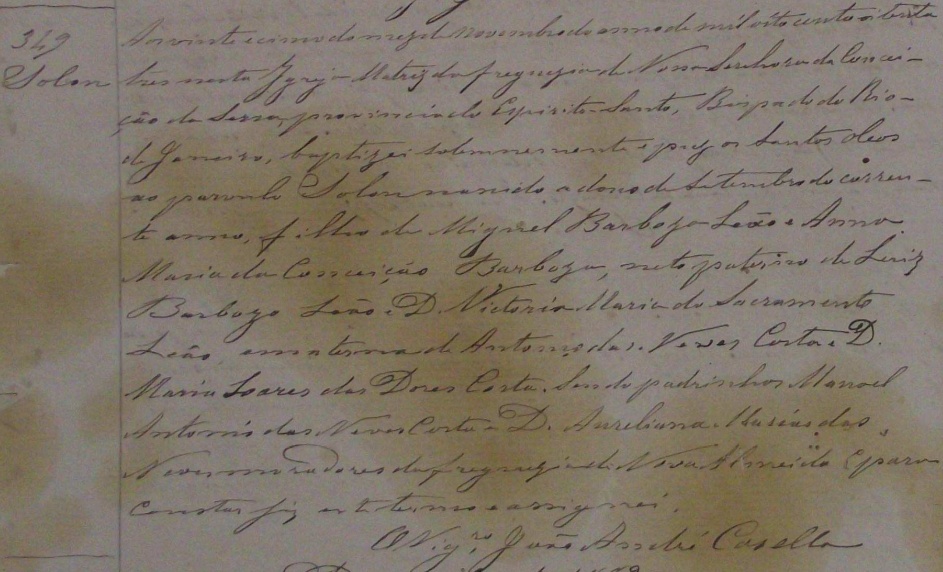 349
Solon
Aos vinte e cinco do mez de Novembro do anno de mil oito centos oitenta
tres nesta Igreja Matriz da freguezia de Nossa Senhora da Concei-
ção da Serra, provincia do Espirito-Santo, Bispado do Rio-
de Janeiro, baptizei solemnemente e puz os Santos Oleos
ao parvulo Solon nascido a doze de Setembro do corren-
te anno, filho de Miguel Barboza Leão e Anna
Maria da Conceição Barboza, neto paterno de Luiz
Barboza Leão e D. Victoria Maria do Sacramento
Leão, e materno de Antonio das Neves Costa e D.
Maria Soares das Dores Costa. Sendo padrinhos Manoel
Antonio das Neves Costa e D. Aureliana Maria das
Neves moradores da freguezia de Nova Almeida E para
constar fiz este termo e assignei.
O Vigr.º João André Casella